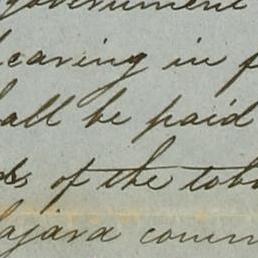 government
leaving in f
all be paid
ds of the toba
agara comm